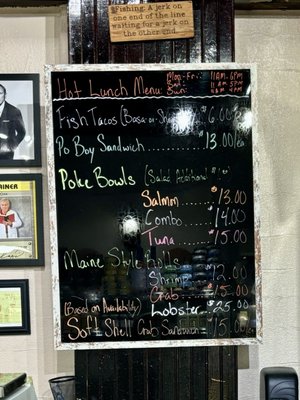 Fishing: A jerk on
one end of the line
waiting for a jerk on
the other end.
Hot Lunch Menu
Mon-Fri: 11AM-6PM
Sat: 11AM-5PM
Sun:
Fish Tacos (Basa-or-Shrimp) $6.00
Po Boy Sandwich $13.00/ea
Poke Bowls (Salad Additional $1.00)
Salmon $13.00
Combo $14.00
Tuna $15.00
Maine Style Rolls
Shrimp $12.00
Crab $15.00
(Based on Availability) Lobster $25.00
Soft Shell Crab Sandwich $15.00